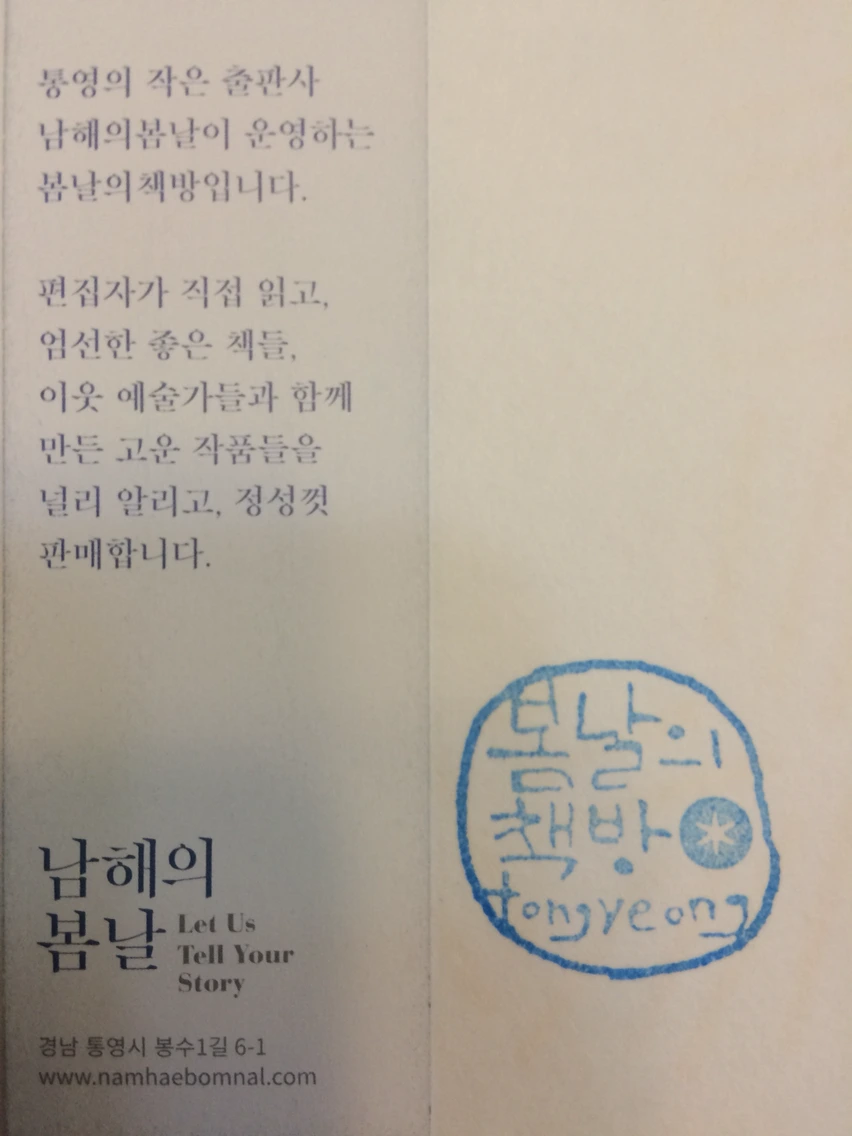 통영의 작은 출판사
남해의봄날이 운영하는
봄날의책방입니다.
편집자가 직접 읽고,
엄선한 좋은 책들,
이웃 예술가들과 함께
만든 고운 작품들을
널리 알리고, 정성껏
판매합니다.
남해의
봄날
Let Us
Tell Your
Story
경남 통영시 봉수1길 6-1
www.namhaebomnal.com
봄날의
책방
tongyeong